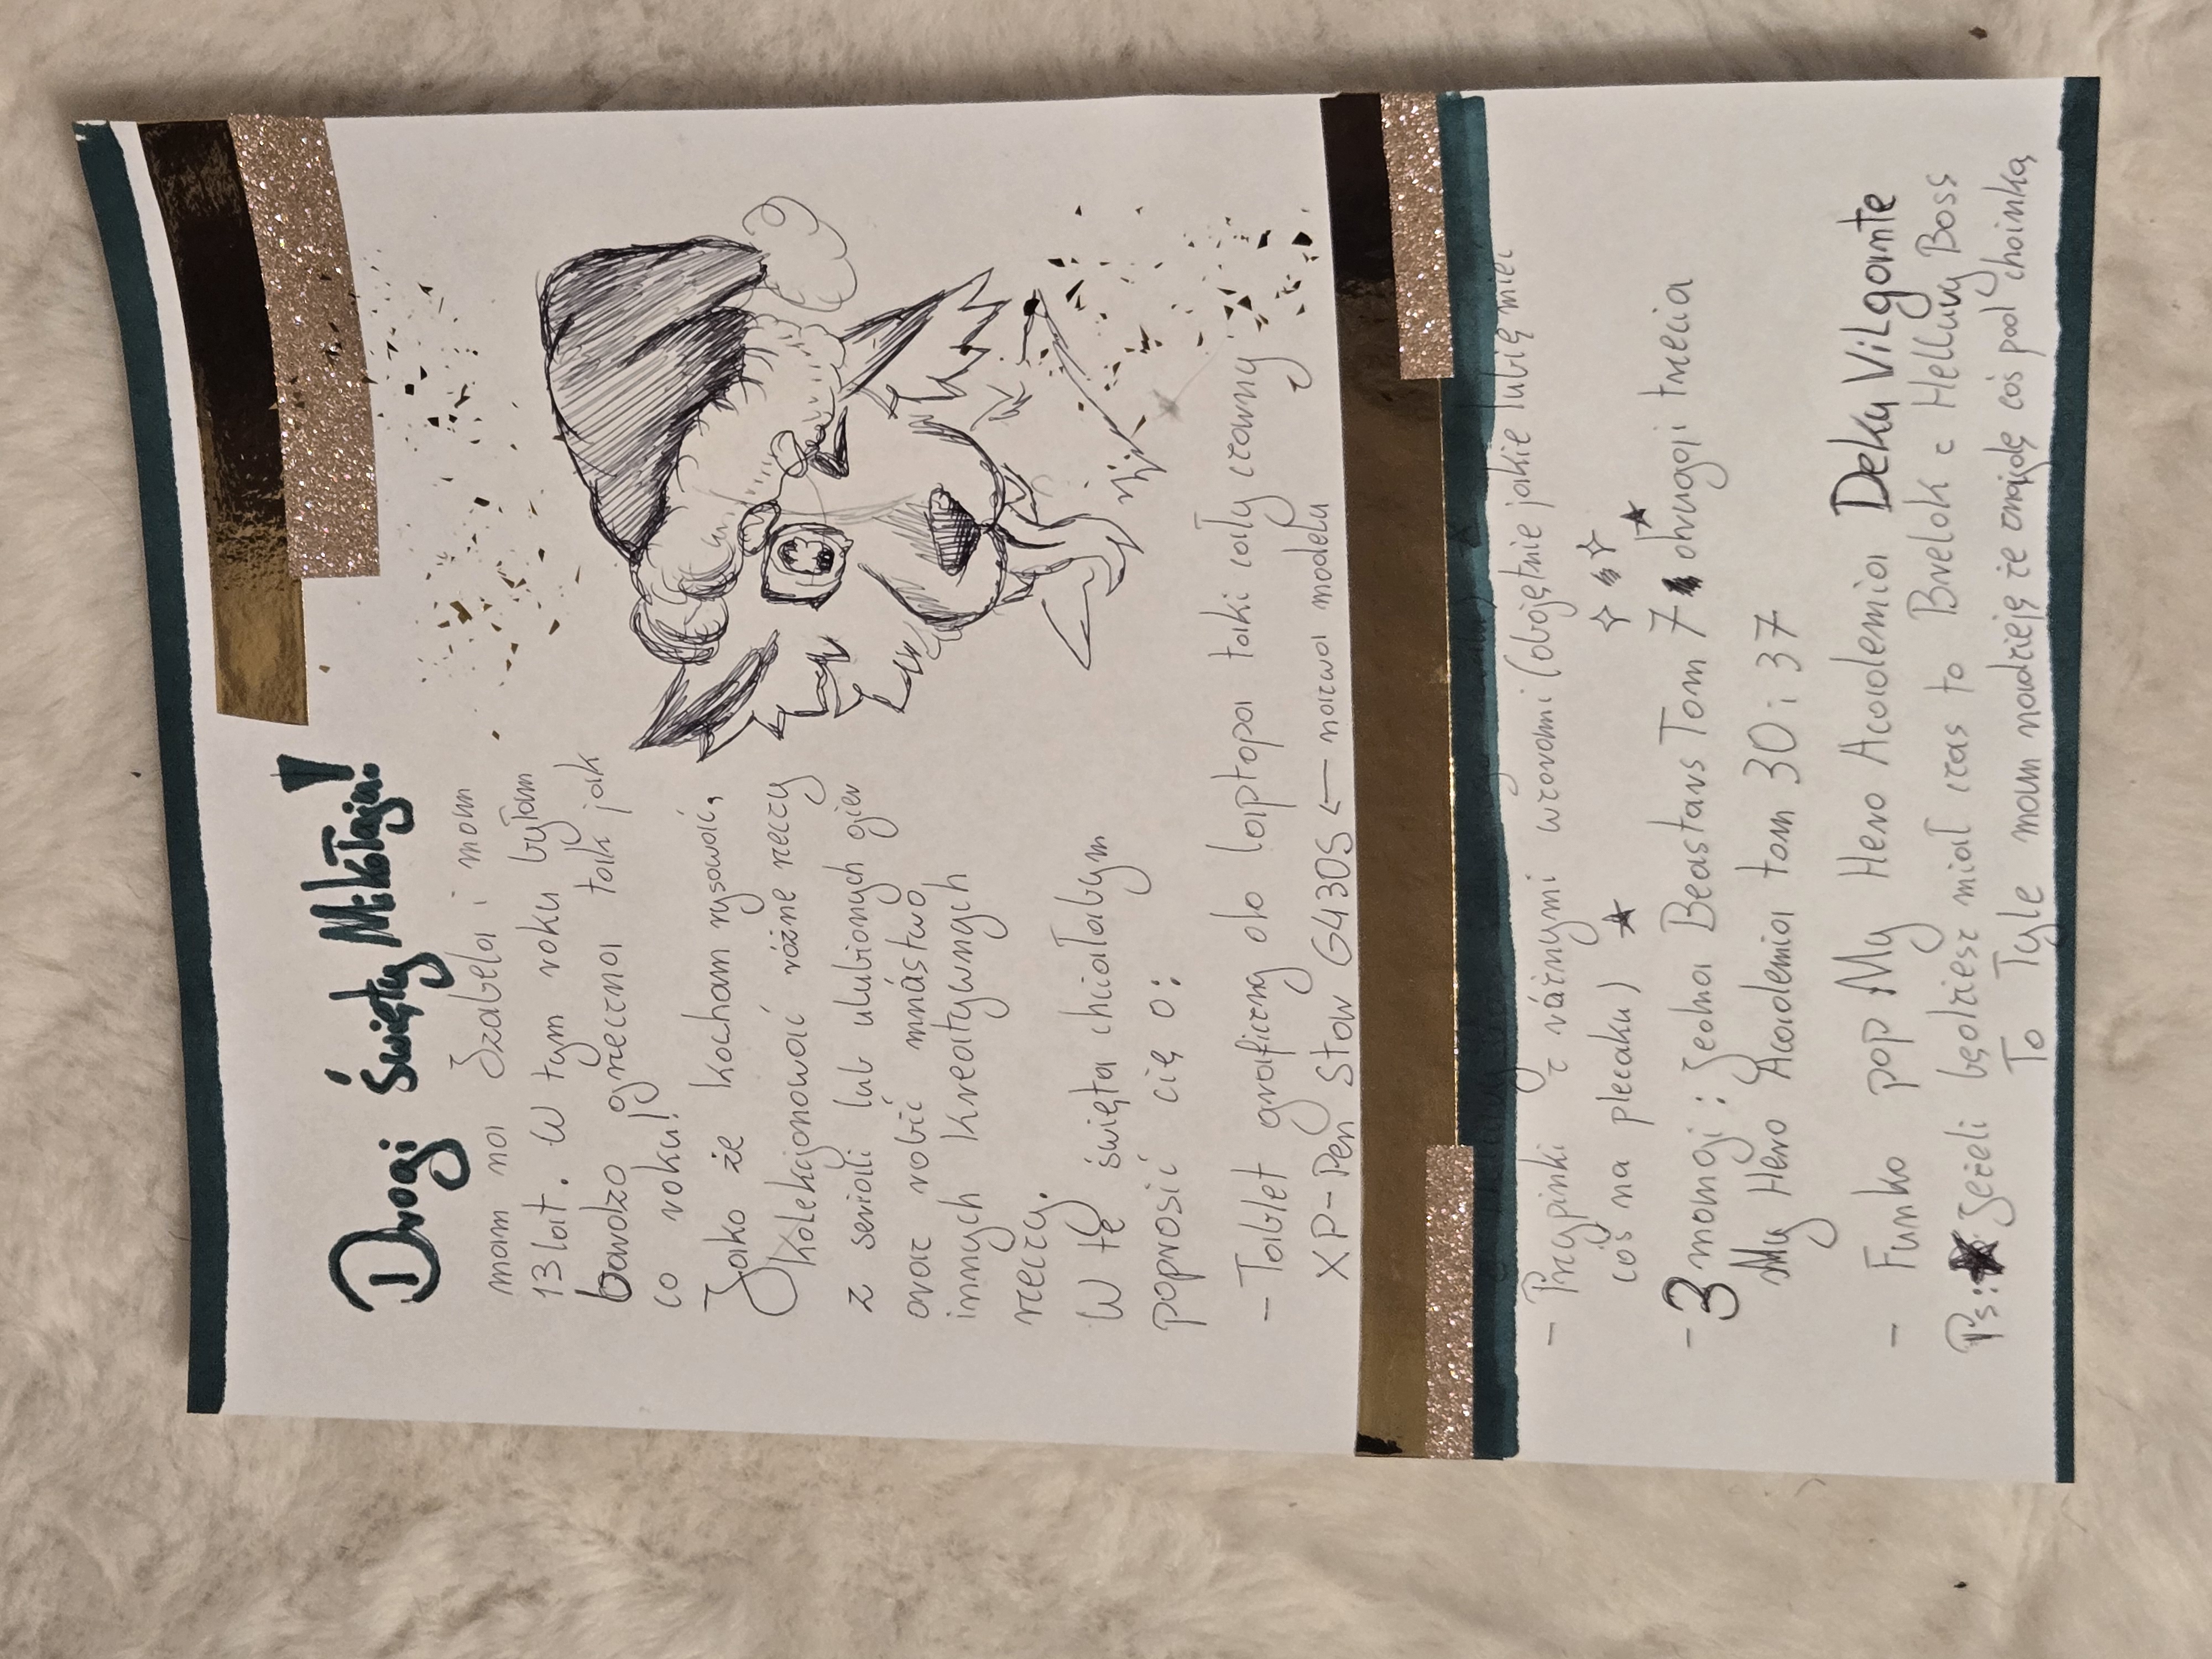 Drogi Święty Mikołaju!
mam na Izabela i mam
13 lat. W tym roku byłam
bardzo grzeczna tak jak
co roku!
Jako że kocham rysować,
kolekcjonować różne rzeczy
z seriali lub ulubionych gier
oraz robić mnóstwo
innych kreatywnych
rzeczy.
W tę święta chciałabym
poprosić cię o:
- Tablet graficzny do laptopa taki cały czarny
XP-Pen Star G430S ← nazwa modelu
- Przypinki z różnymi wzorami (obojętnie jakie lubię mieć
coś na plecaku)
- 3 mangi: Jedna Beastars Tom 7 druga i trzecia
My Hero Academia tom 30 i 37
- Funko pop My Hero Academia Deku Vilgante
Ps: Jeżeli będziesz miał czas to Brelok z Helluvą Boss
To Tyle mam nadzieję że znajdę coś pod choinką